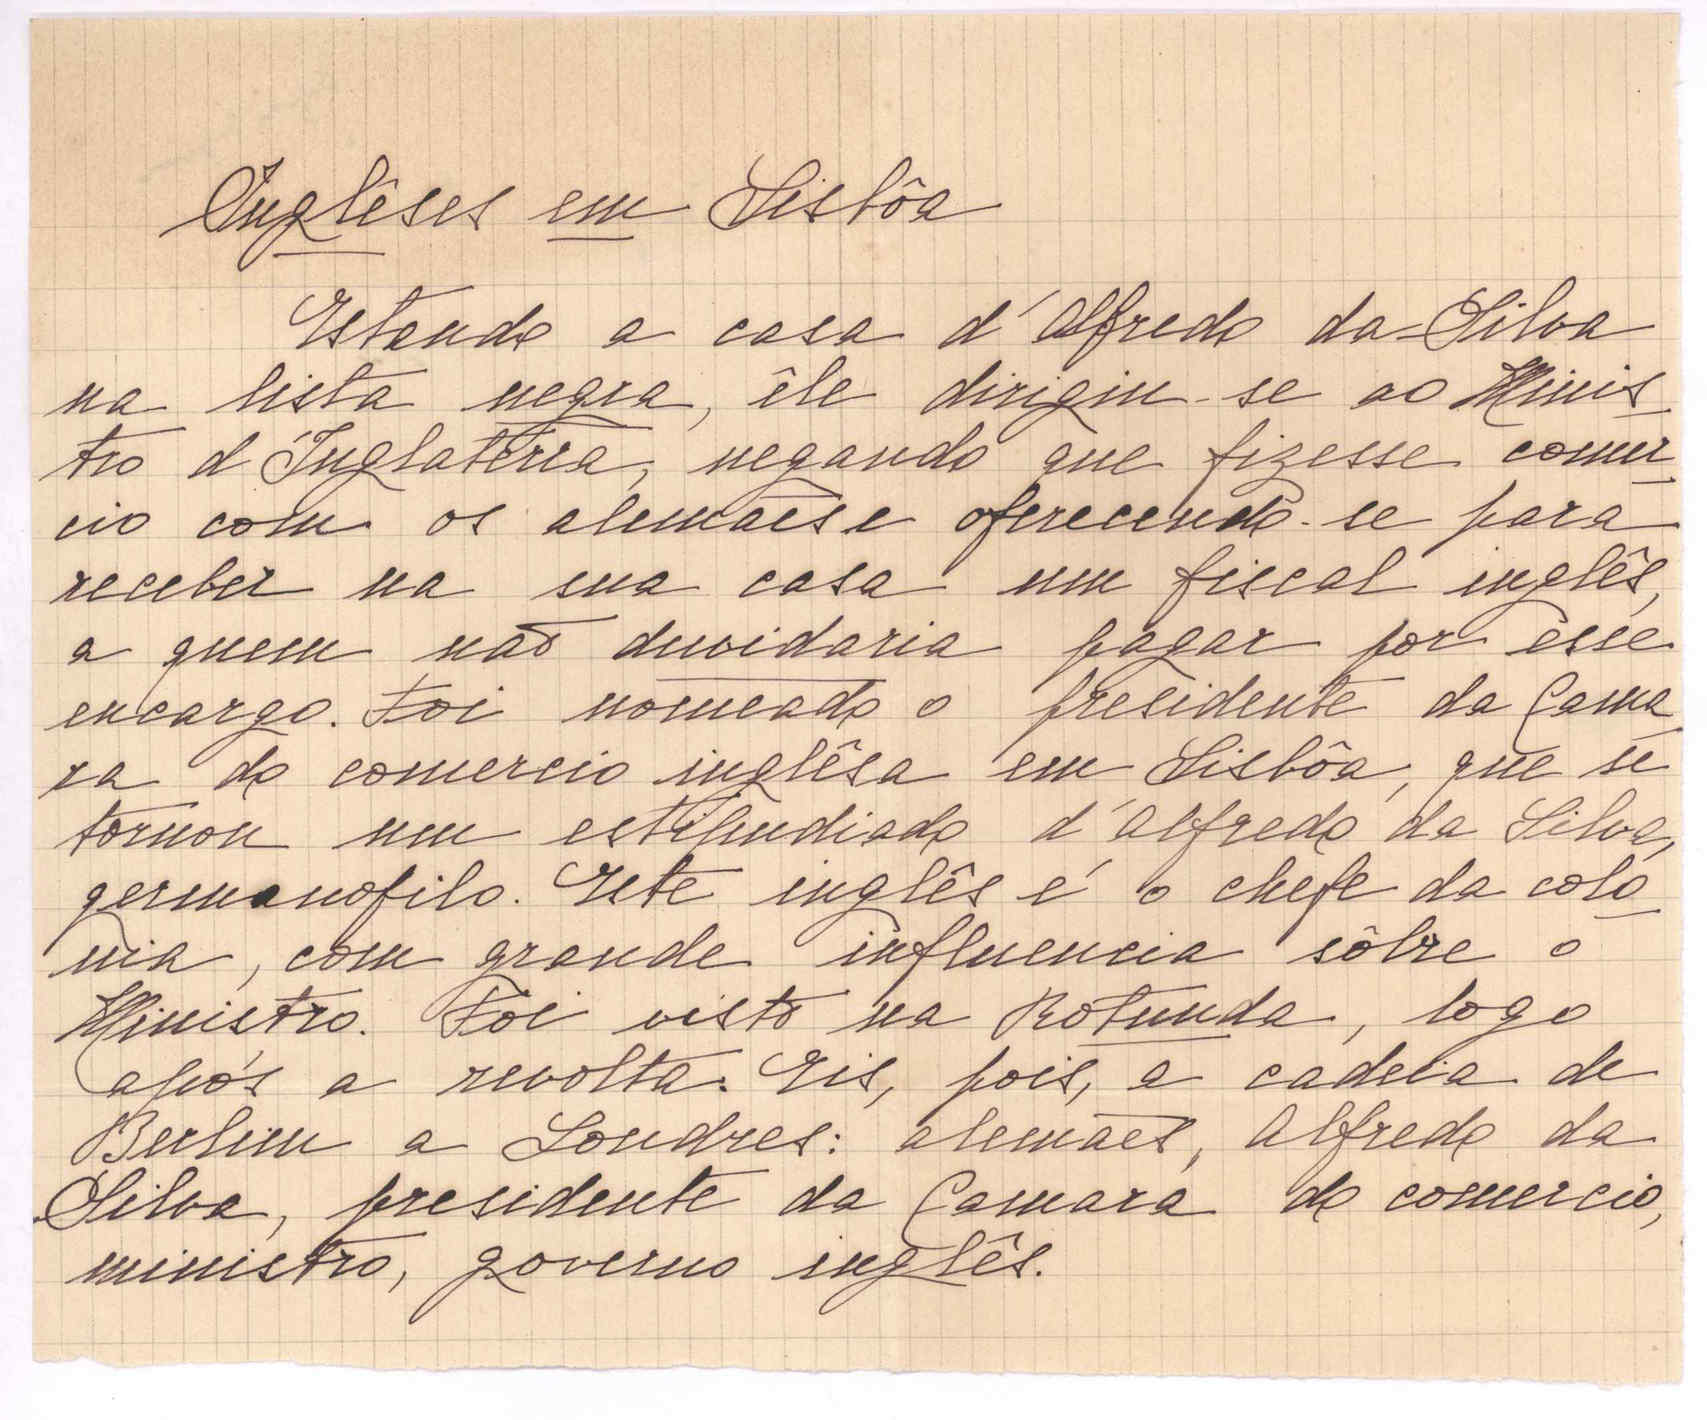 Inglêses em Lisbôa
Estando a casa d'Alfredo da Silva
na lista negra, êle dirigiu-se ao Minis-
tro d'Inglaterra, negando que fizesse comer-
cio com os alemães e oferecendo-se para
receber na sua casa um fiscal inglês,
a quem não duvidaria pagar por êsse
encargo. Foi nomeado o presidente da Cama-
ra do comercio inglêsa em Lisbôa, que se
tornou um estipendiado d'Alfredo da Silva,
germanofilo. Este inglês é o chefe da colo-
nia, com grande influencia sôbre o
Ministro. Foi visto na Rotunda, logo
após a revolta. Eis, pois, a cadeia de
Berlim a Londres: alemães, Alfredo da
Silva, presidente da Camara do comercio,
ministro, governo inglês.